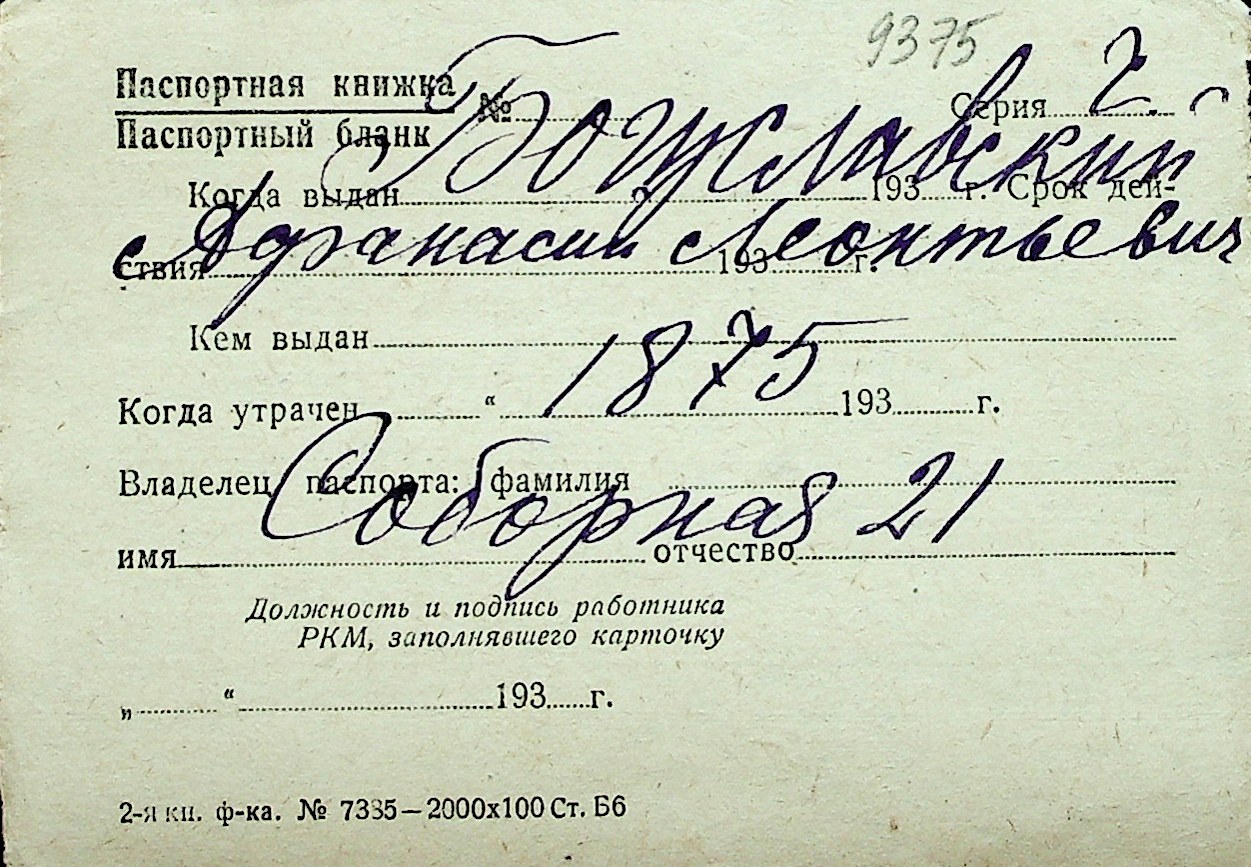 9375
Паспортная книжка № Серия 2
Паспортный бланк
Божславский
Когда выдан 193 г. Срок дей-
Афанасий Леонтьевич
ствия 193 г.
Кем выдан
1875
Когда утрачен " 193 г.
Владелец паспорта: фамилия
Соборная 21
имя отчество
Должность и подпись работника
РКМ, заполнявшего карточку
„ “ 193 г.
2-я кн. ф-ка. № 7335—2000х100 Ст. Б6